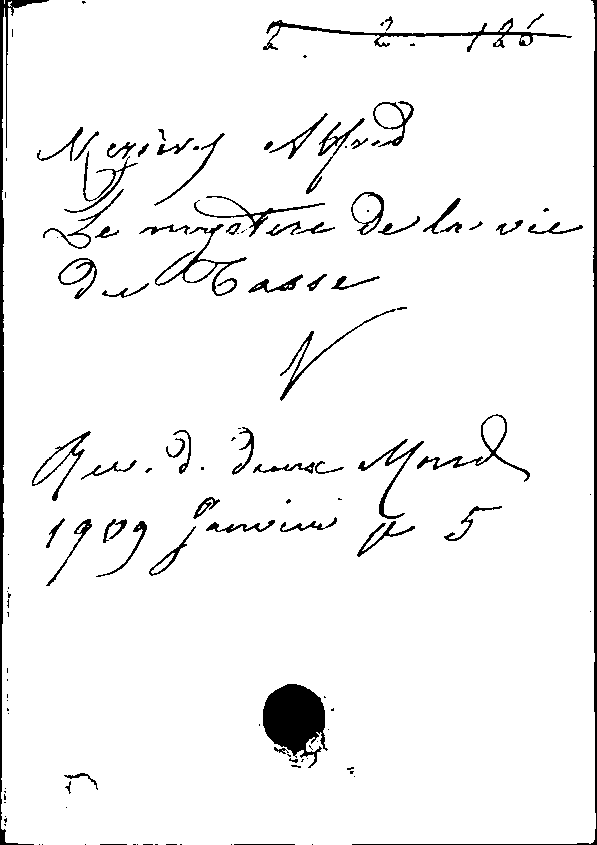 2. 2. 126
Mezières Alfred
Le mystère de la vie
du Tasse
V
Rev. d. deux Mond
1909 Janvier p 5